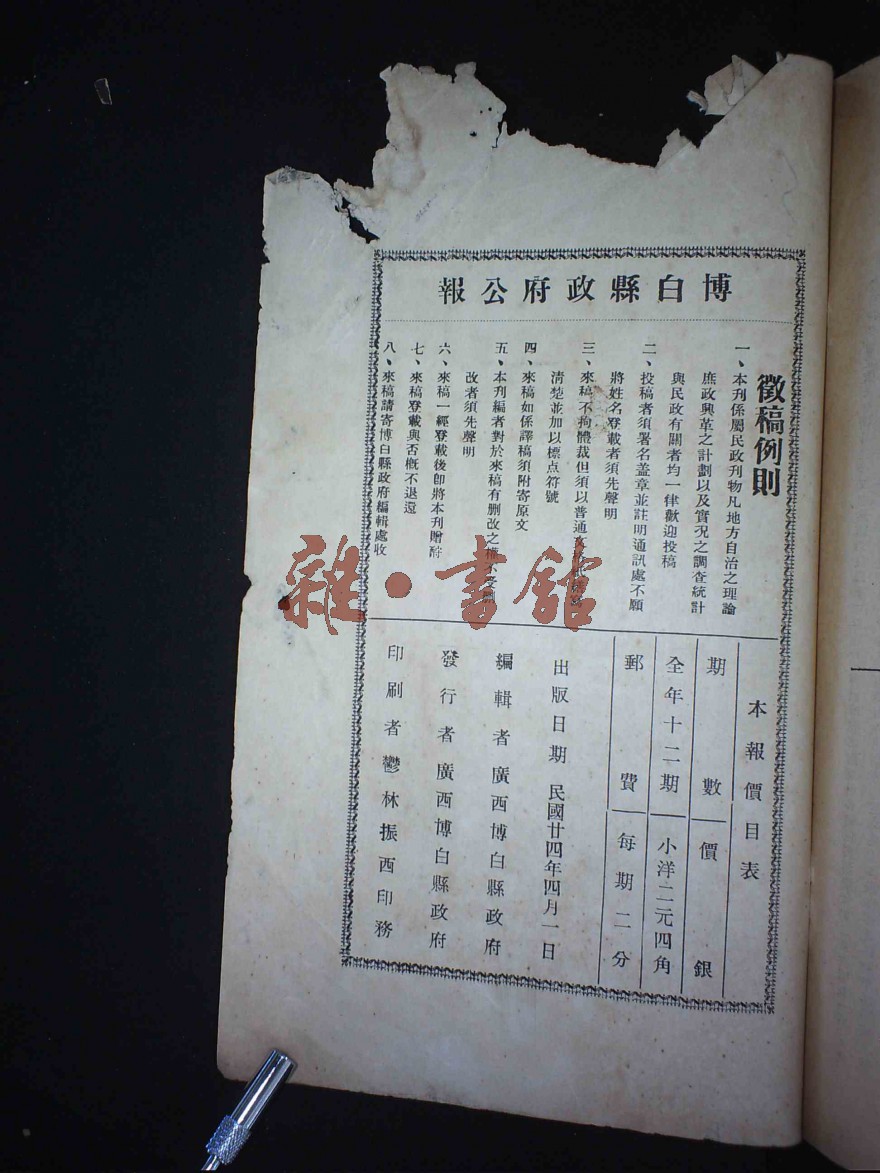 博白縣政府公報
徵稿例則
一、本刊係屬民政刊物凡地方自治之理論
庶政興革之計劃以及實況之調查統計
與民政有關者均一律歡迎投稿
二、投稿者須署名盖章並註明通訊處不願
將姓名登載者須先聲明
三、來稿不拘體裁但須以普通
清楚並加以標点符號
四、來稿如係譯稿須附寄原文
五、本刊編者對於來稿有删改之權不
改者須先聲明
六、來稿一經登載後卽將本刊贈
七、來稿登載與否概不退還
八、來稿請寄博白縣政府編輯處收
本報價目表
期數 價銀
全年十二期 小洋二元四角
郵費 每期二分
出版日期 民國廿四年四月一日
編輯者廣西博白縣政府
發行者廣西博白縣政府
印刷者鬱林振西印務
雜·書館